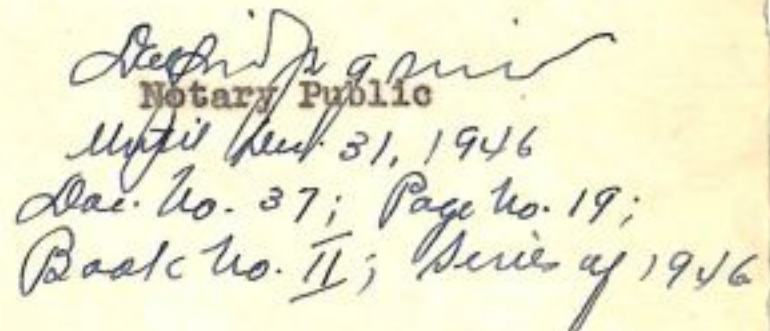 Notary Public
Until Dec. 31, 1946
Doc. No. 37; Page No. 19;
Book No. II; Series of 1946